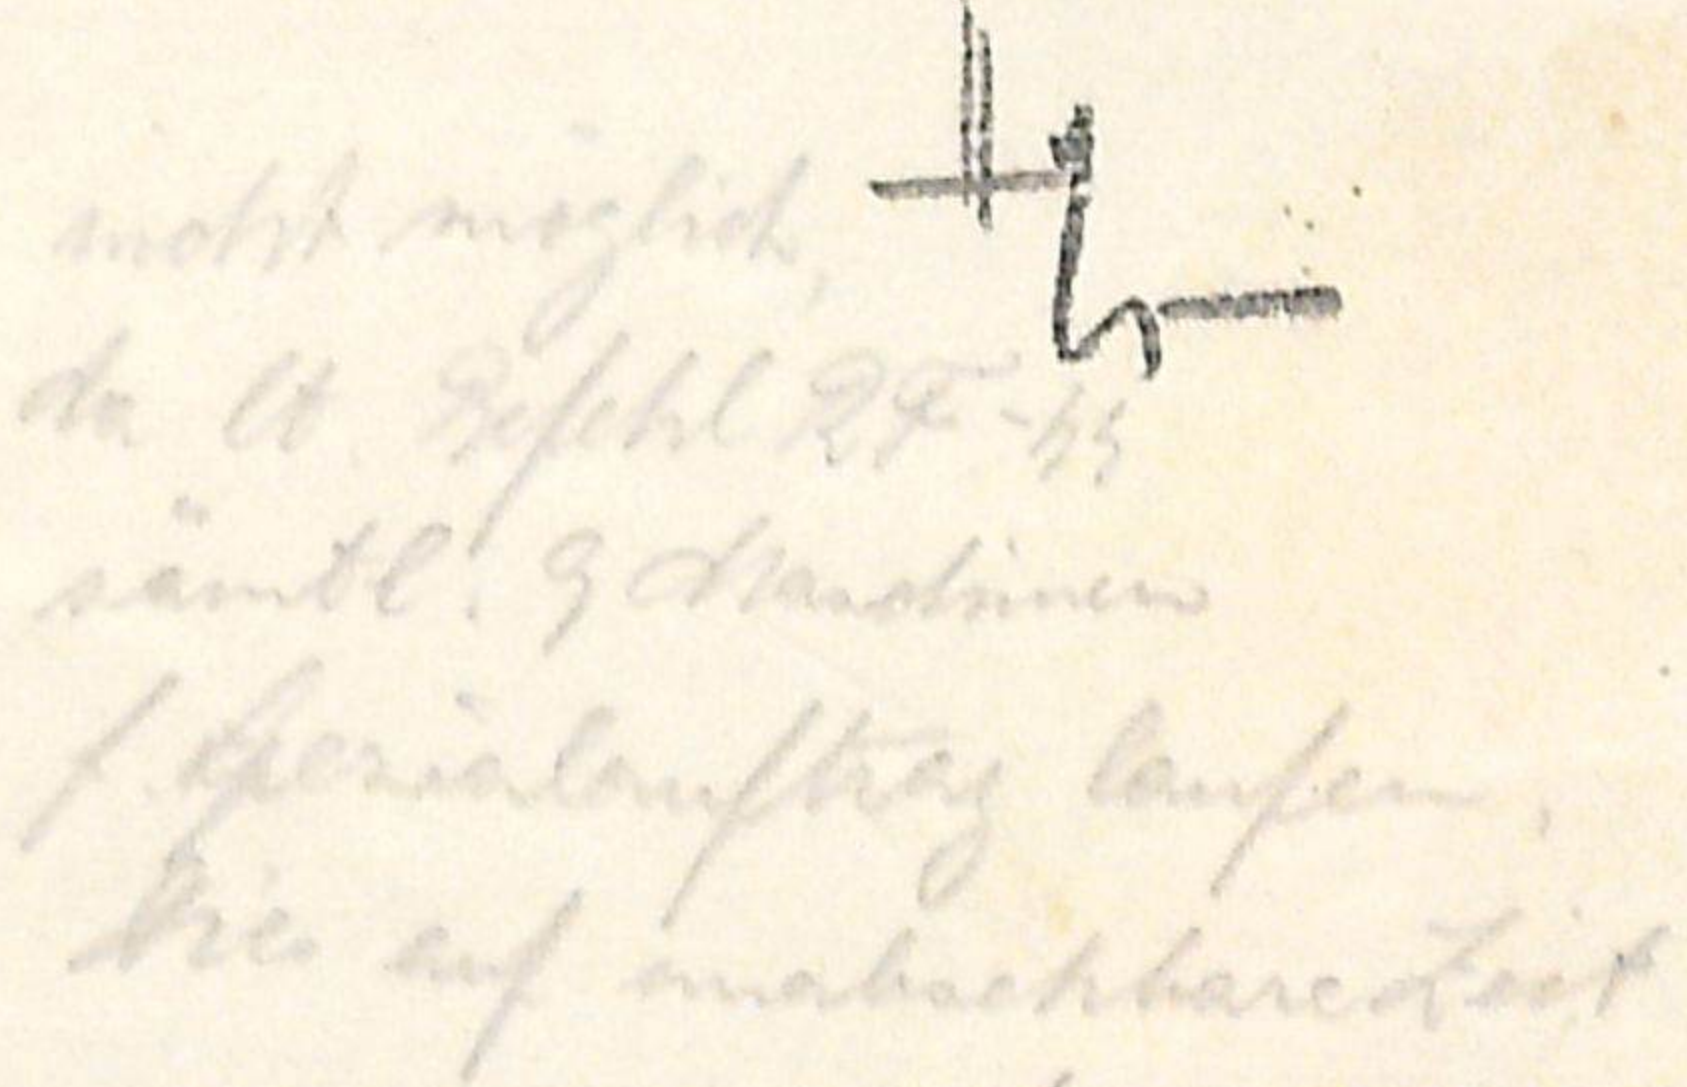 nicht möglich,
da lt. Befehl RF-SS
sämtl. 9 Maschinen
f. Spezialauftrag laufen.
Dies auf unabsehbare Zeit